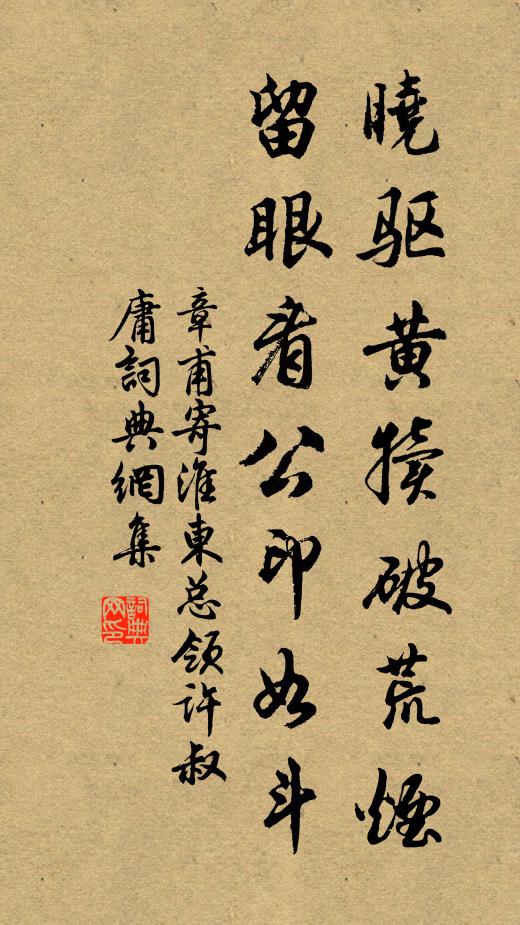 曉驱黄犊破荒煙
留眼看公印如斗
章甫寄淮東总领许叔
庸詞典網集
詞典网印